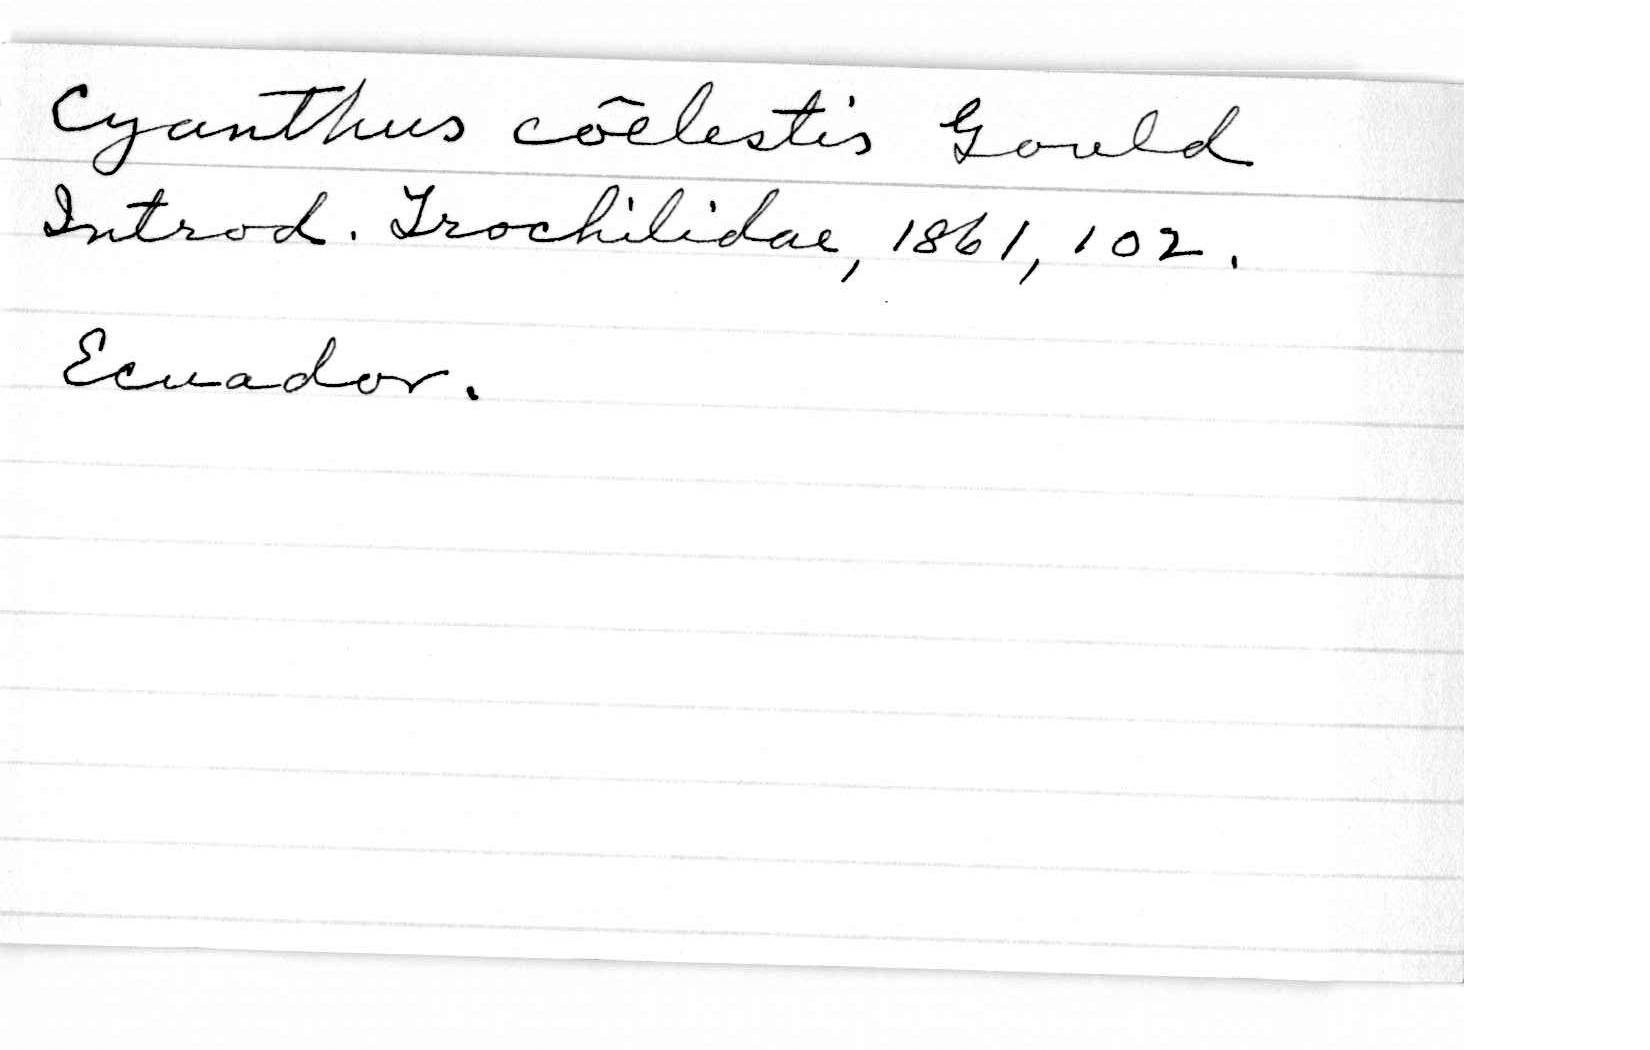 Cyanthus cõelestis Gould
Introd. Trochilidae, 1861, 102.
Ecuador.